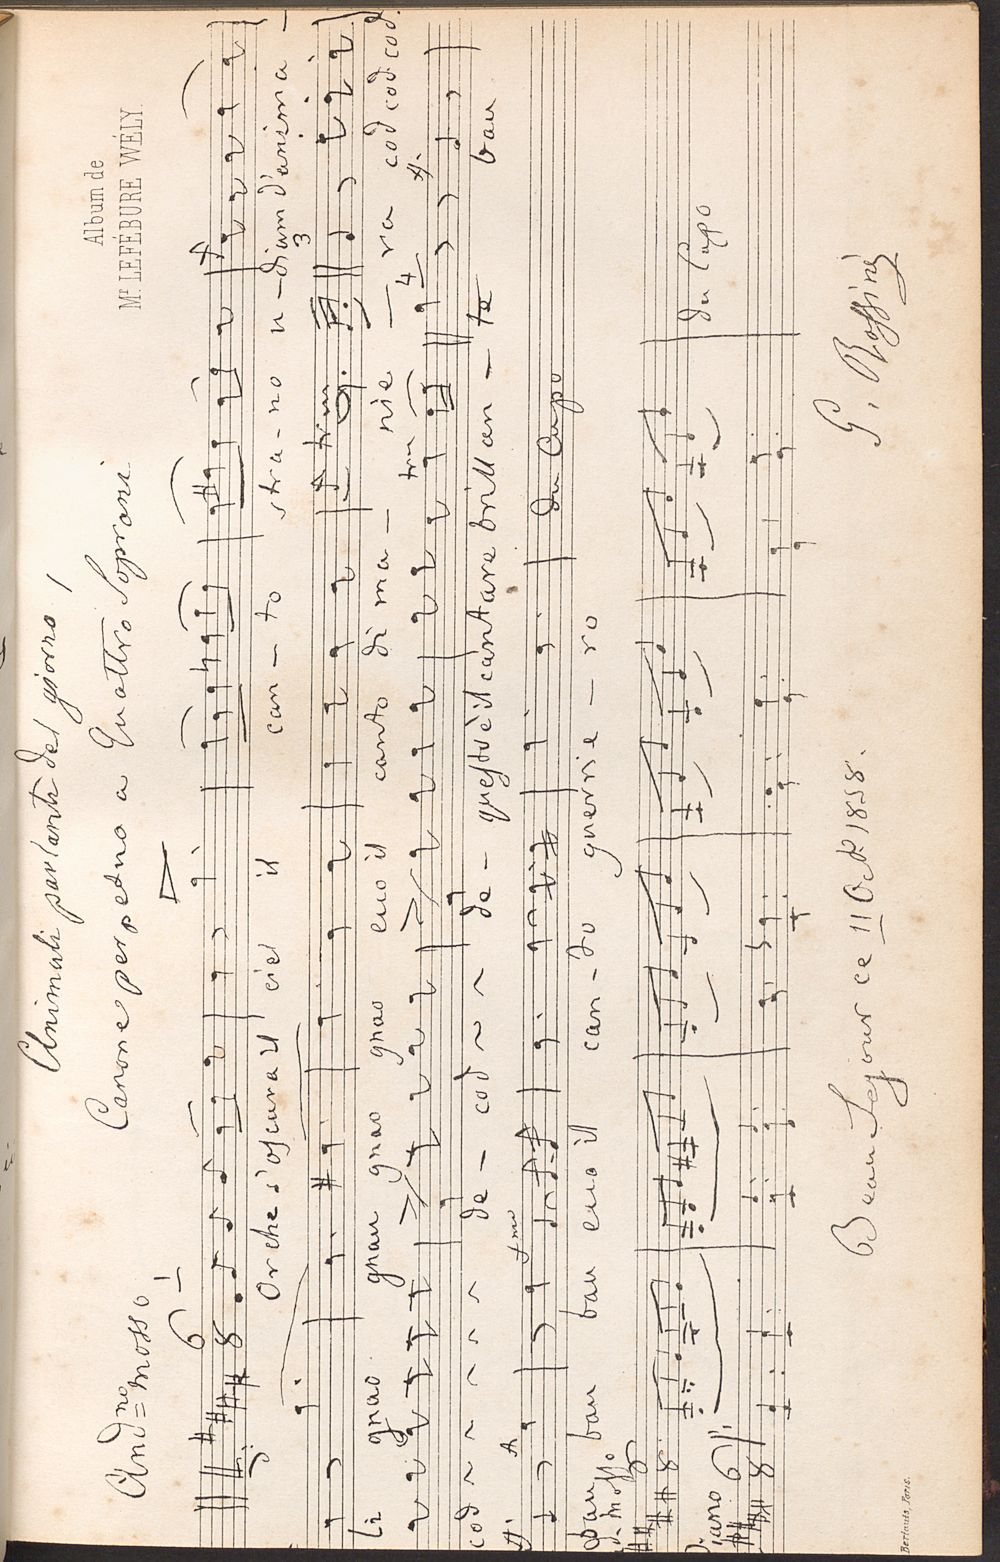 Album de
Mr. LEFÉBURE WÉLY.
Animali parlanti del giorno /
Canone perpetuo a Quattro Soprani.
Andno = mosso
6
8
1
Or che s'oscura il ciel il can - to stra - no u - diam d'anima -
3
li gnao. gnau gnao gnao ecco il canto di ma - nie - ra cod cod cod cod.
4
cod ~ ~ ~ ~ ~ ~ de - cod ~ ~ de - quest'è il cantare brillan - te bau
bau bau bau ecco il can - to guerrie - ro
Da Capo
Piano
6
8
Da Capo
Beau Sejour ce 11 Oct. 1858.
G. Rossini
Bertauts, Paris.